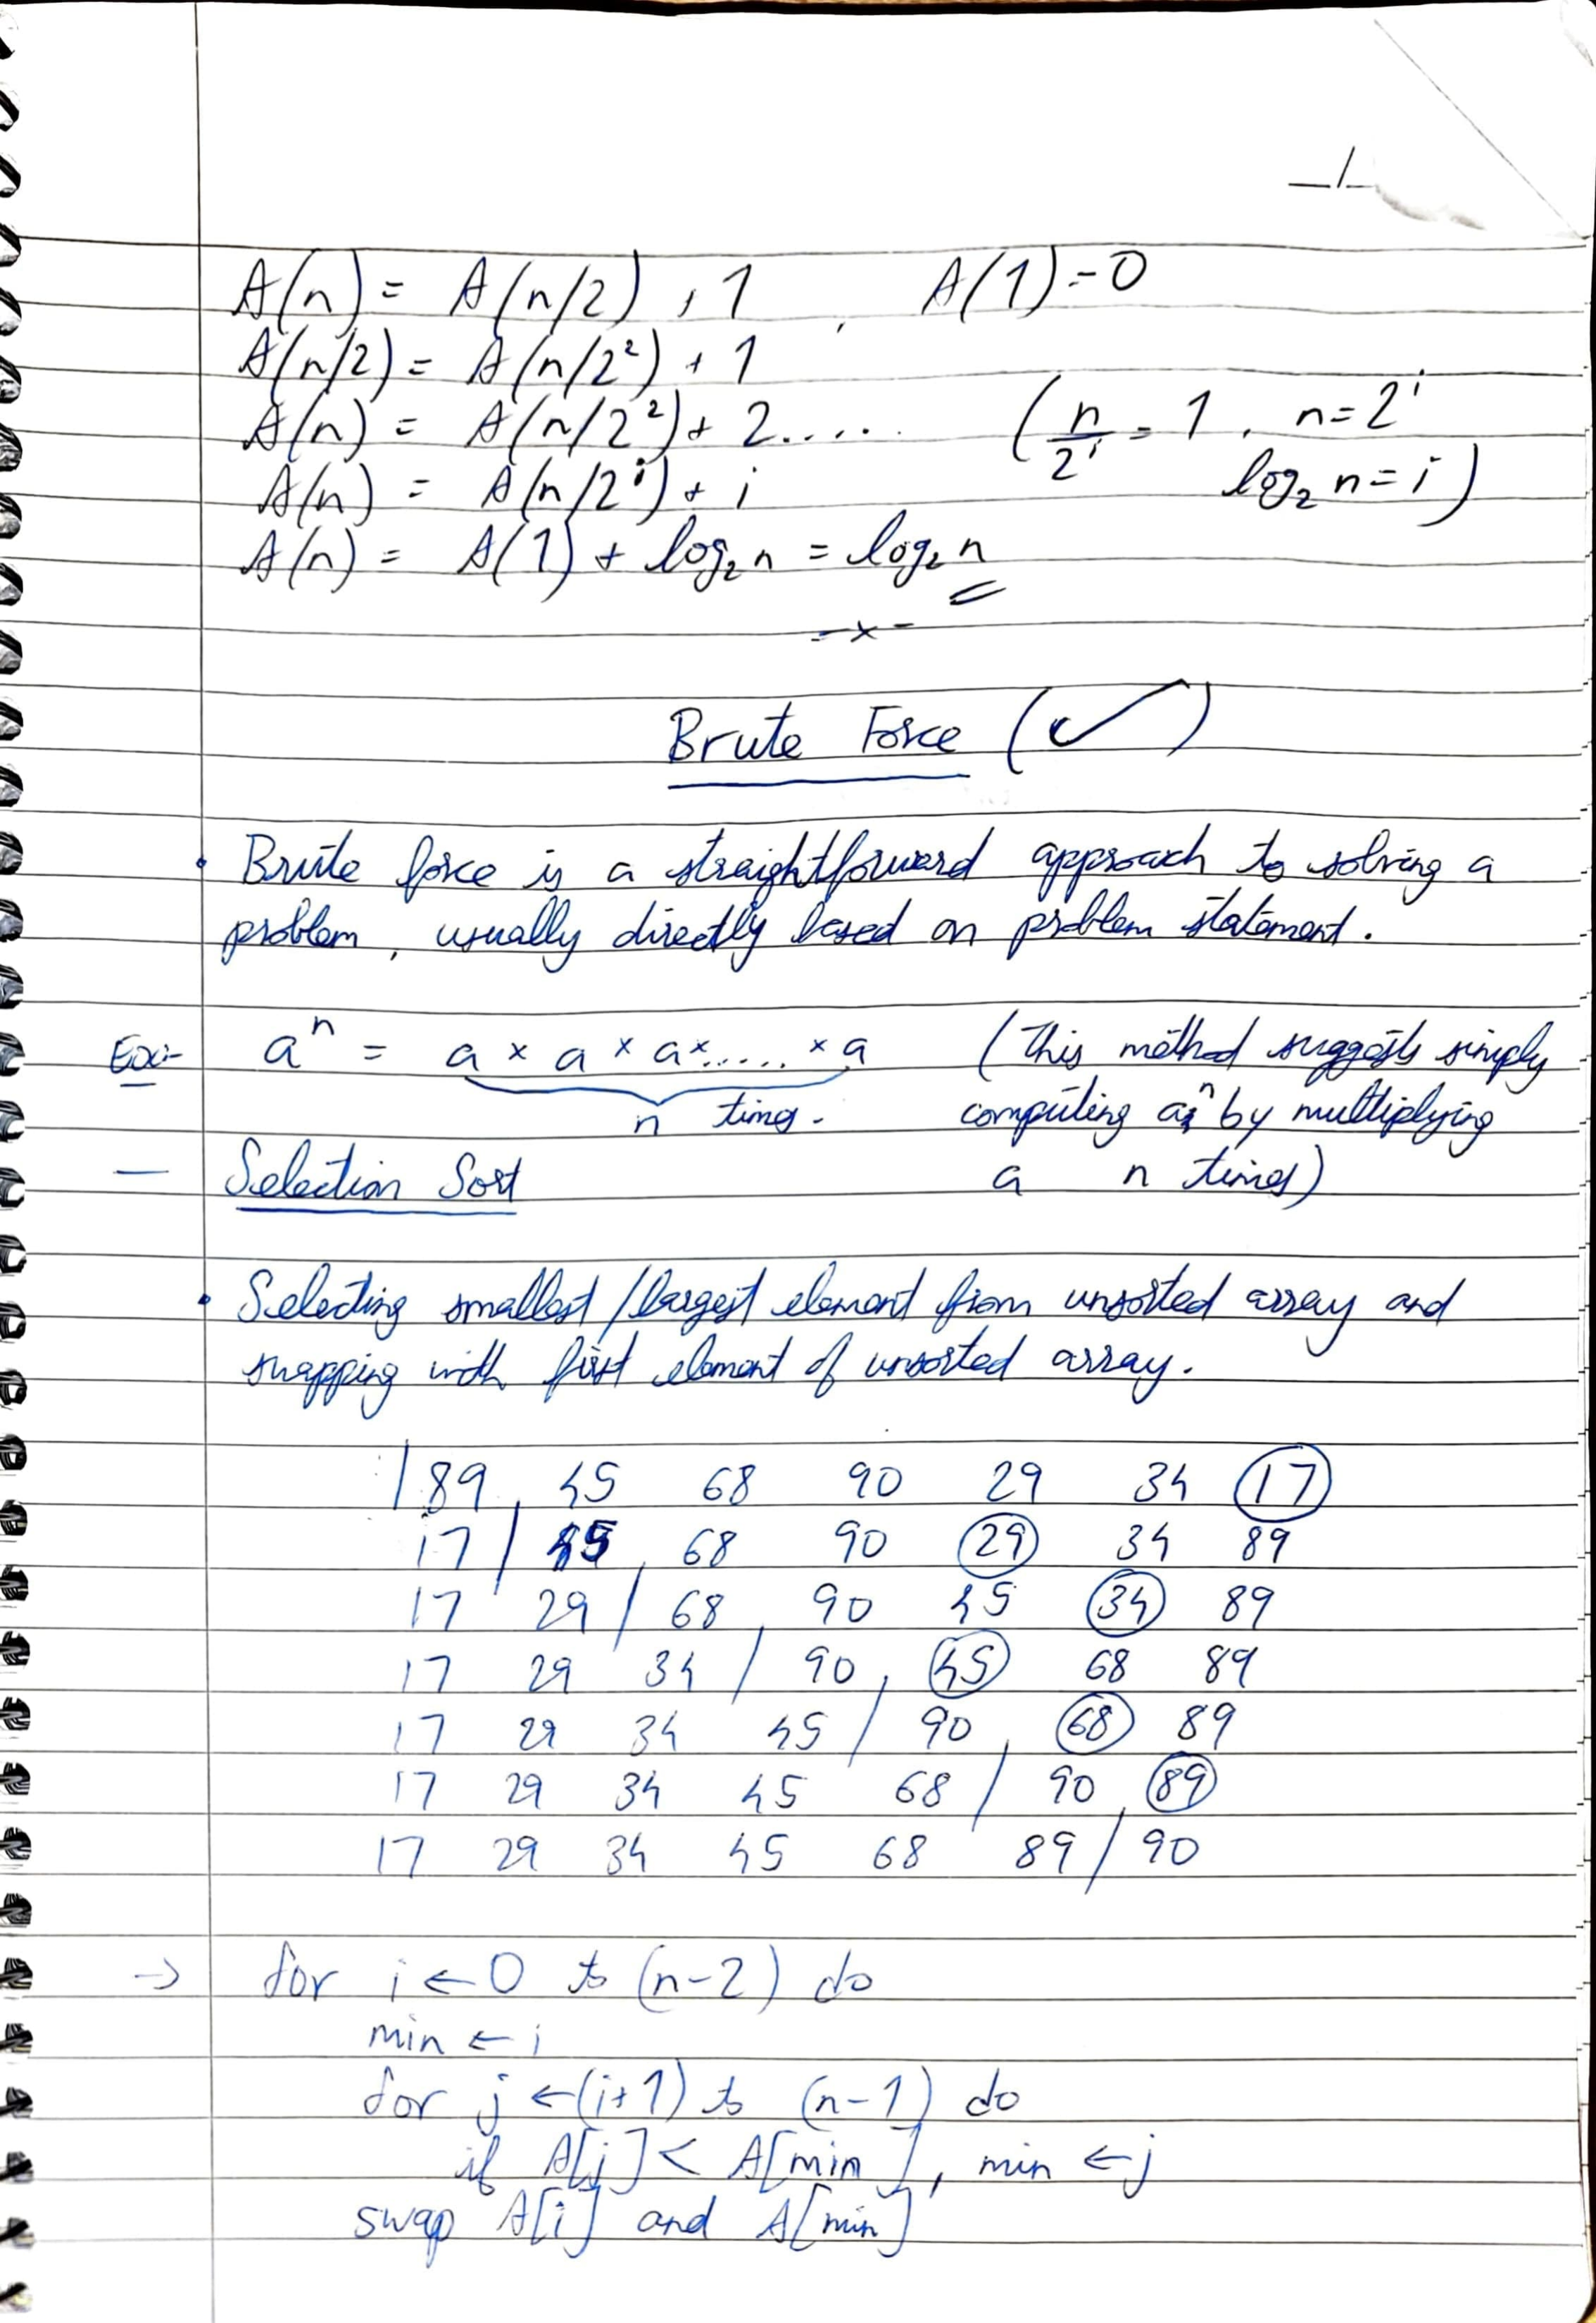 A(n) = A(n/2) + 1 , A(1)=0
A(n/2) = A(n/2²) + 1
A(n) = A(n/2²) + 2..... (n/2ⁱ = 1, n=2ⁱ
A(n) = A(n/2ⁱ) + i log₂ n = i)
A(n) = A(1) + log₂ n = log₂ n
-x-
Brute Force (✓)
• Brute force is a straightforward approach to solving a
problem, usually directly based on problem statement.
Ex:- aⁿ = a × a × a × ..... × a (This method suggests simply
n times. computing aⁿ by multiplying
— Selection Sort a n times)
• Selecting smallest/largest element from unsorted array and
swapping with first element of unsorted array.
| 89, 45 68 90 29 34 17
17 | 45, 68 90 29 34 89
17 29 | 68, 90 45 34 89
17 29 34 | 90, 45 68 89
17 29 34 45 | 90, 68 89
17 29 34 45 68 | 90, 89
17 29 34 45 68 89 | 90
→ for i ← 0 to (n-2) do
min ← i
for j ← (i+1) to (n-1) do
if A[j] < A[min], min ← j
swap A[i] and A[min]